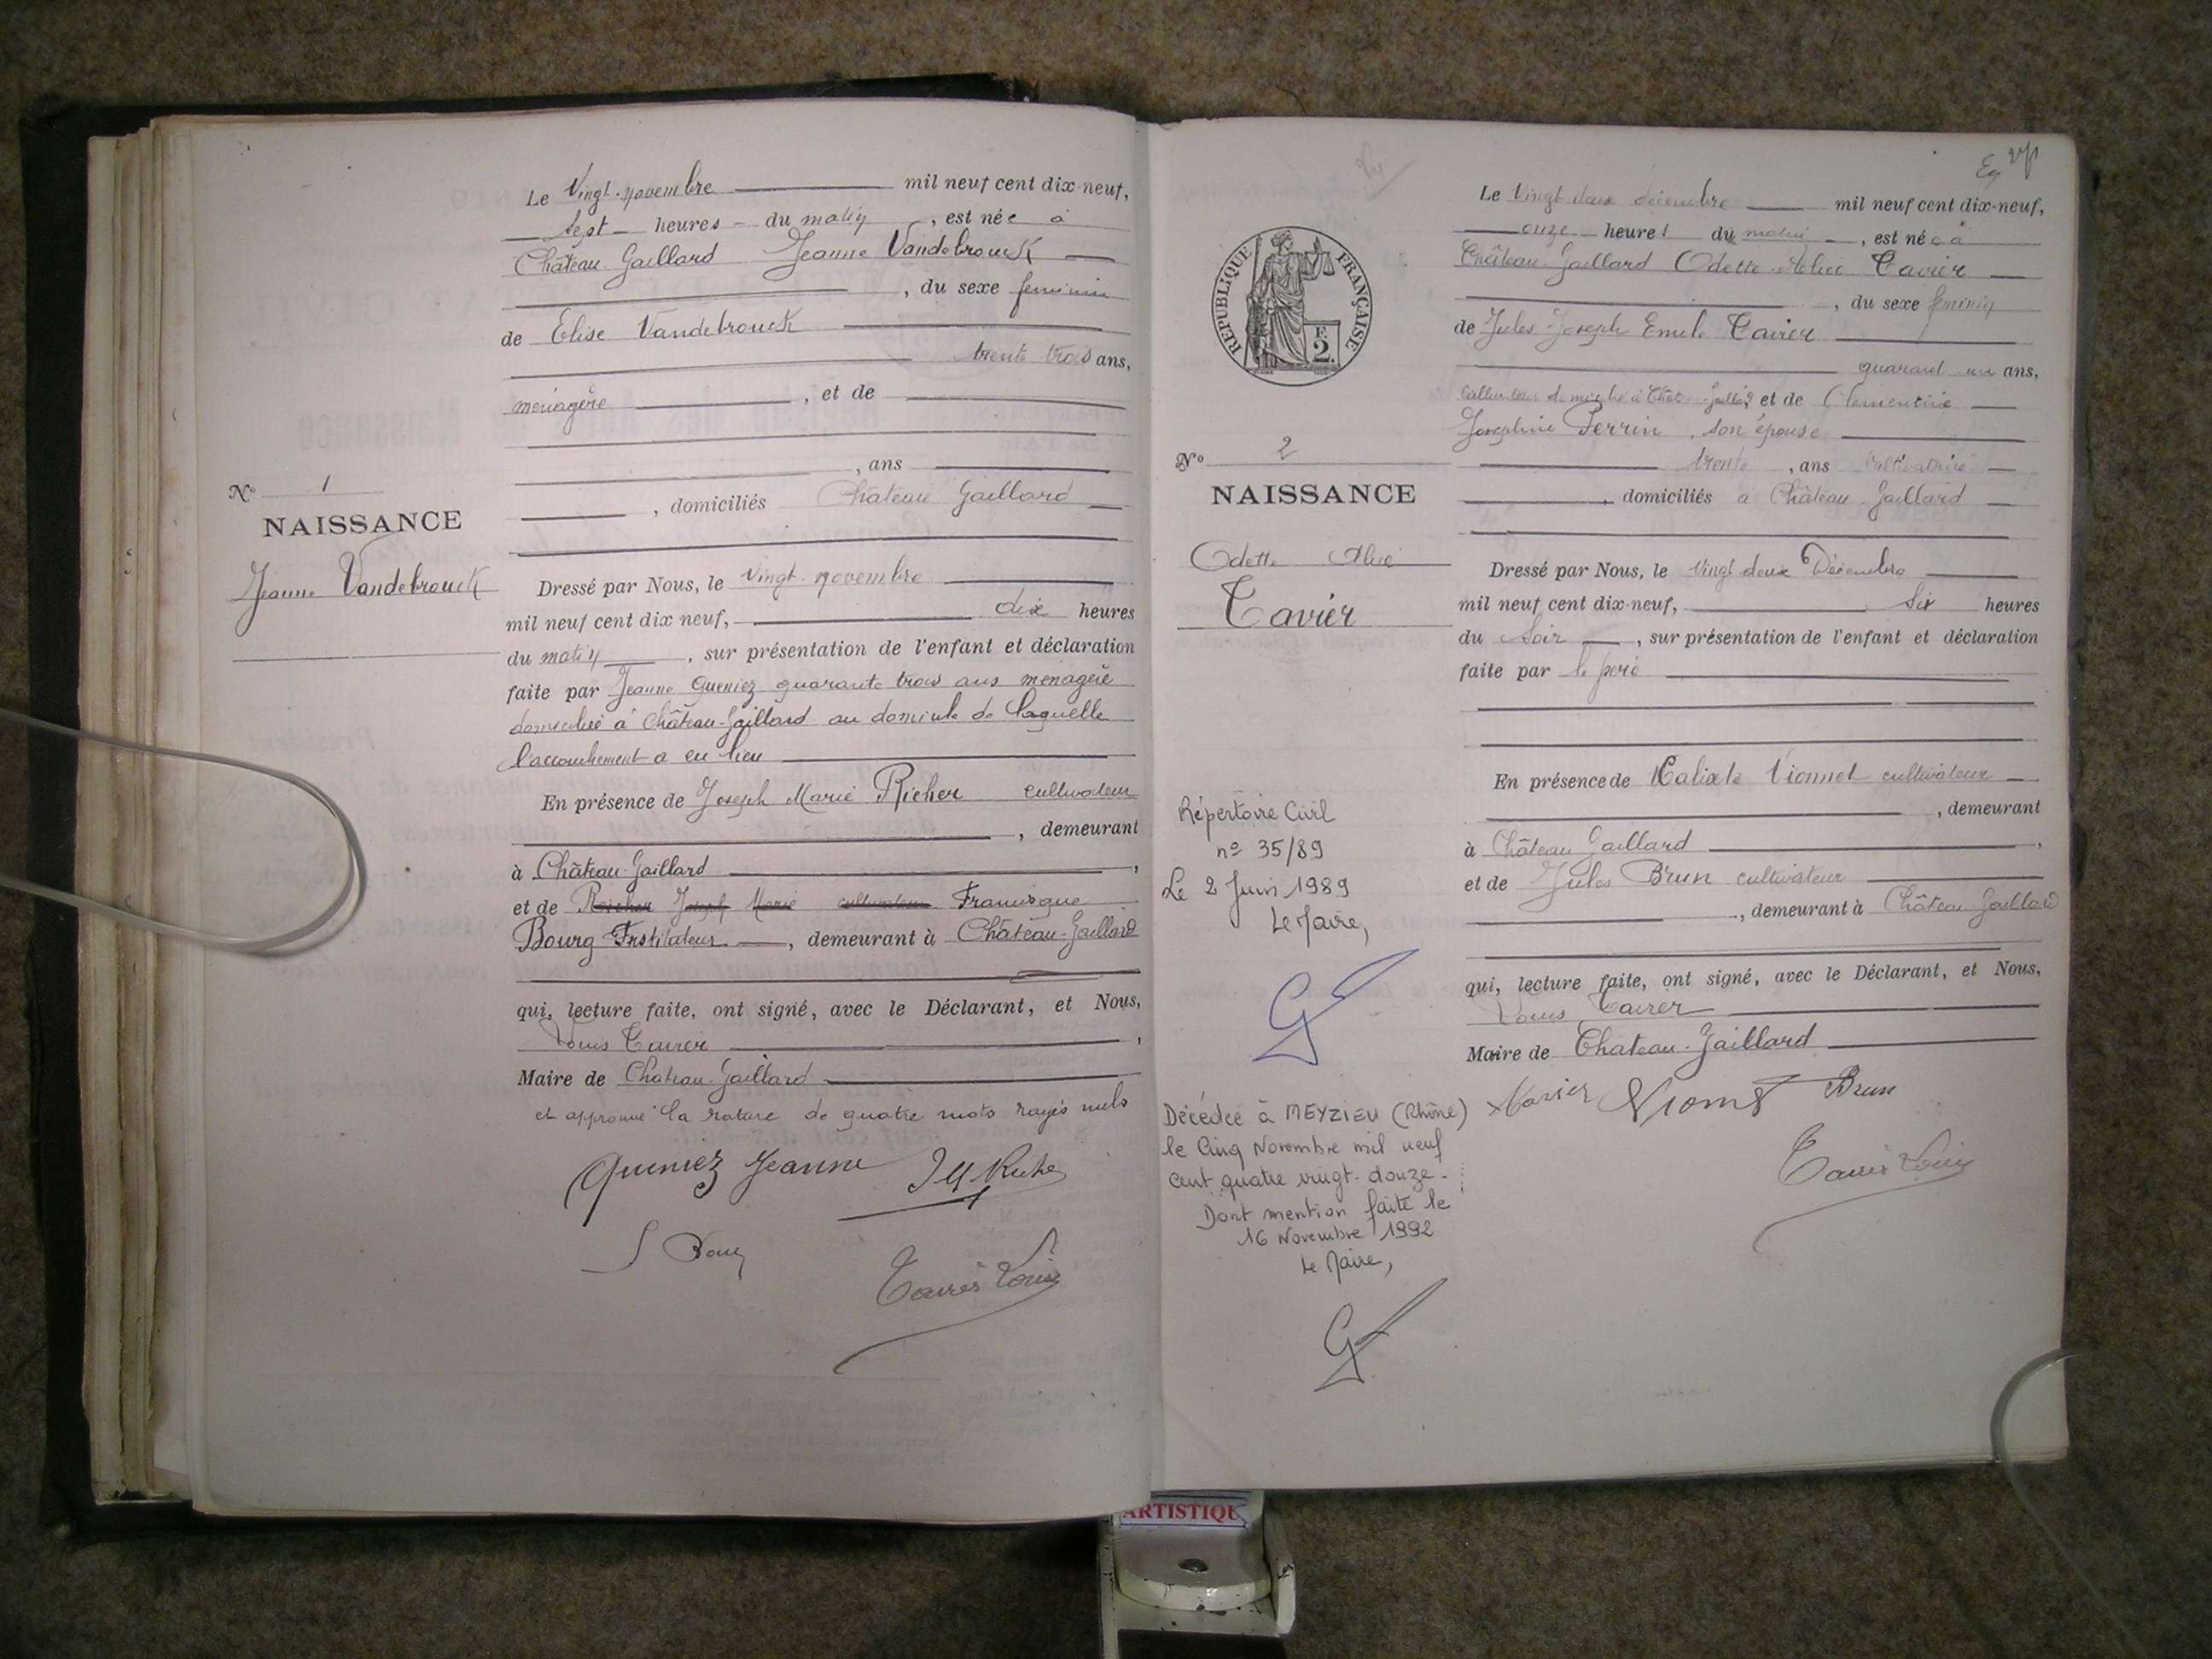 Le Vingt-novembre mil neuf cent dix-neuf,
Sept heures du matin, est née à
Château Gaillard Jeanne Vandebrouck
, du sexe feminin
de Elise Vandebrouck
trente trois ans,
ménagère, et de
, ans
, domiciliés Château Gaillard
N° 1
NAISSANCE
Jeanne Vandebrouck
Dressé par Nous, le Vingt-novembre
mil neuf cent dix neuf, dix heures
du matin, sur présentation de l'enfant et déclaration
faite par Jeanne Queniez quarante trois ans ménagère
domiciliée à Château-Gaillard au domicile de laquelle
l'accouchement a eu lieu
En présence de Joseph Marie Richer cultivateur
, demeurant
à Château-Gaillard,
et de Richer Joseph Marie cultivateur Francisque
Bourg Instituteur, demeurant à Château-Gaillard
qui, lecture faite, ont signé, avec le Déclarant, et Nous,
Louis Tavier,
Maire de Chateau-Gaillard
et approuvé la rature de quatre mots rayés nuls
Queniez Jeanne
Tavier Louis
Le Vingt deux décembre mil neuf cent dix-neuf,
onze heures du matin, est née à
Château-Gaillard Odette Alice Tavier
, du sexe feminin
de Jules Joseph Emile Tavier
quarant un ans,
et de Clementine
Josephine Perrin, son épouse
trente, ans cultivatrice
, domiciliés à Château Gaillard
REPUBLIQUE FRANÇAISE
F.
2.
N° 2
NAISSANCE
Odette Alice
Tavier
Dressé par Nous, le vingt-deux Décembre
mil neuf cent dix-neuf, Six heures
du Soir, sur présentation de l'enfant et déclaration
faite par le père
En présence de Calixte Vionnet cultivateur
, demeurant
à Château Gaillard,
et de Jules Brun cultivateur
, demeurant à Château Gaillard
qui, lecture faite, ont signé, avec le Déclarant, et Nous,
Louis Tavier
Maire de Chateau-Gaillard
Brun
Tavier Louis
Répertoire Civil
n° 35/89
Le 2 Juin 1989
Le Maire,
Décédée à MEYZIEU (Rhône)
le Cinq Novembre mil neuf
cent quatre vingt-douze.
Dont mention faite le
16 Novembre 1992
Le Maire,
ARTISTIQUE